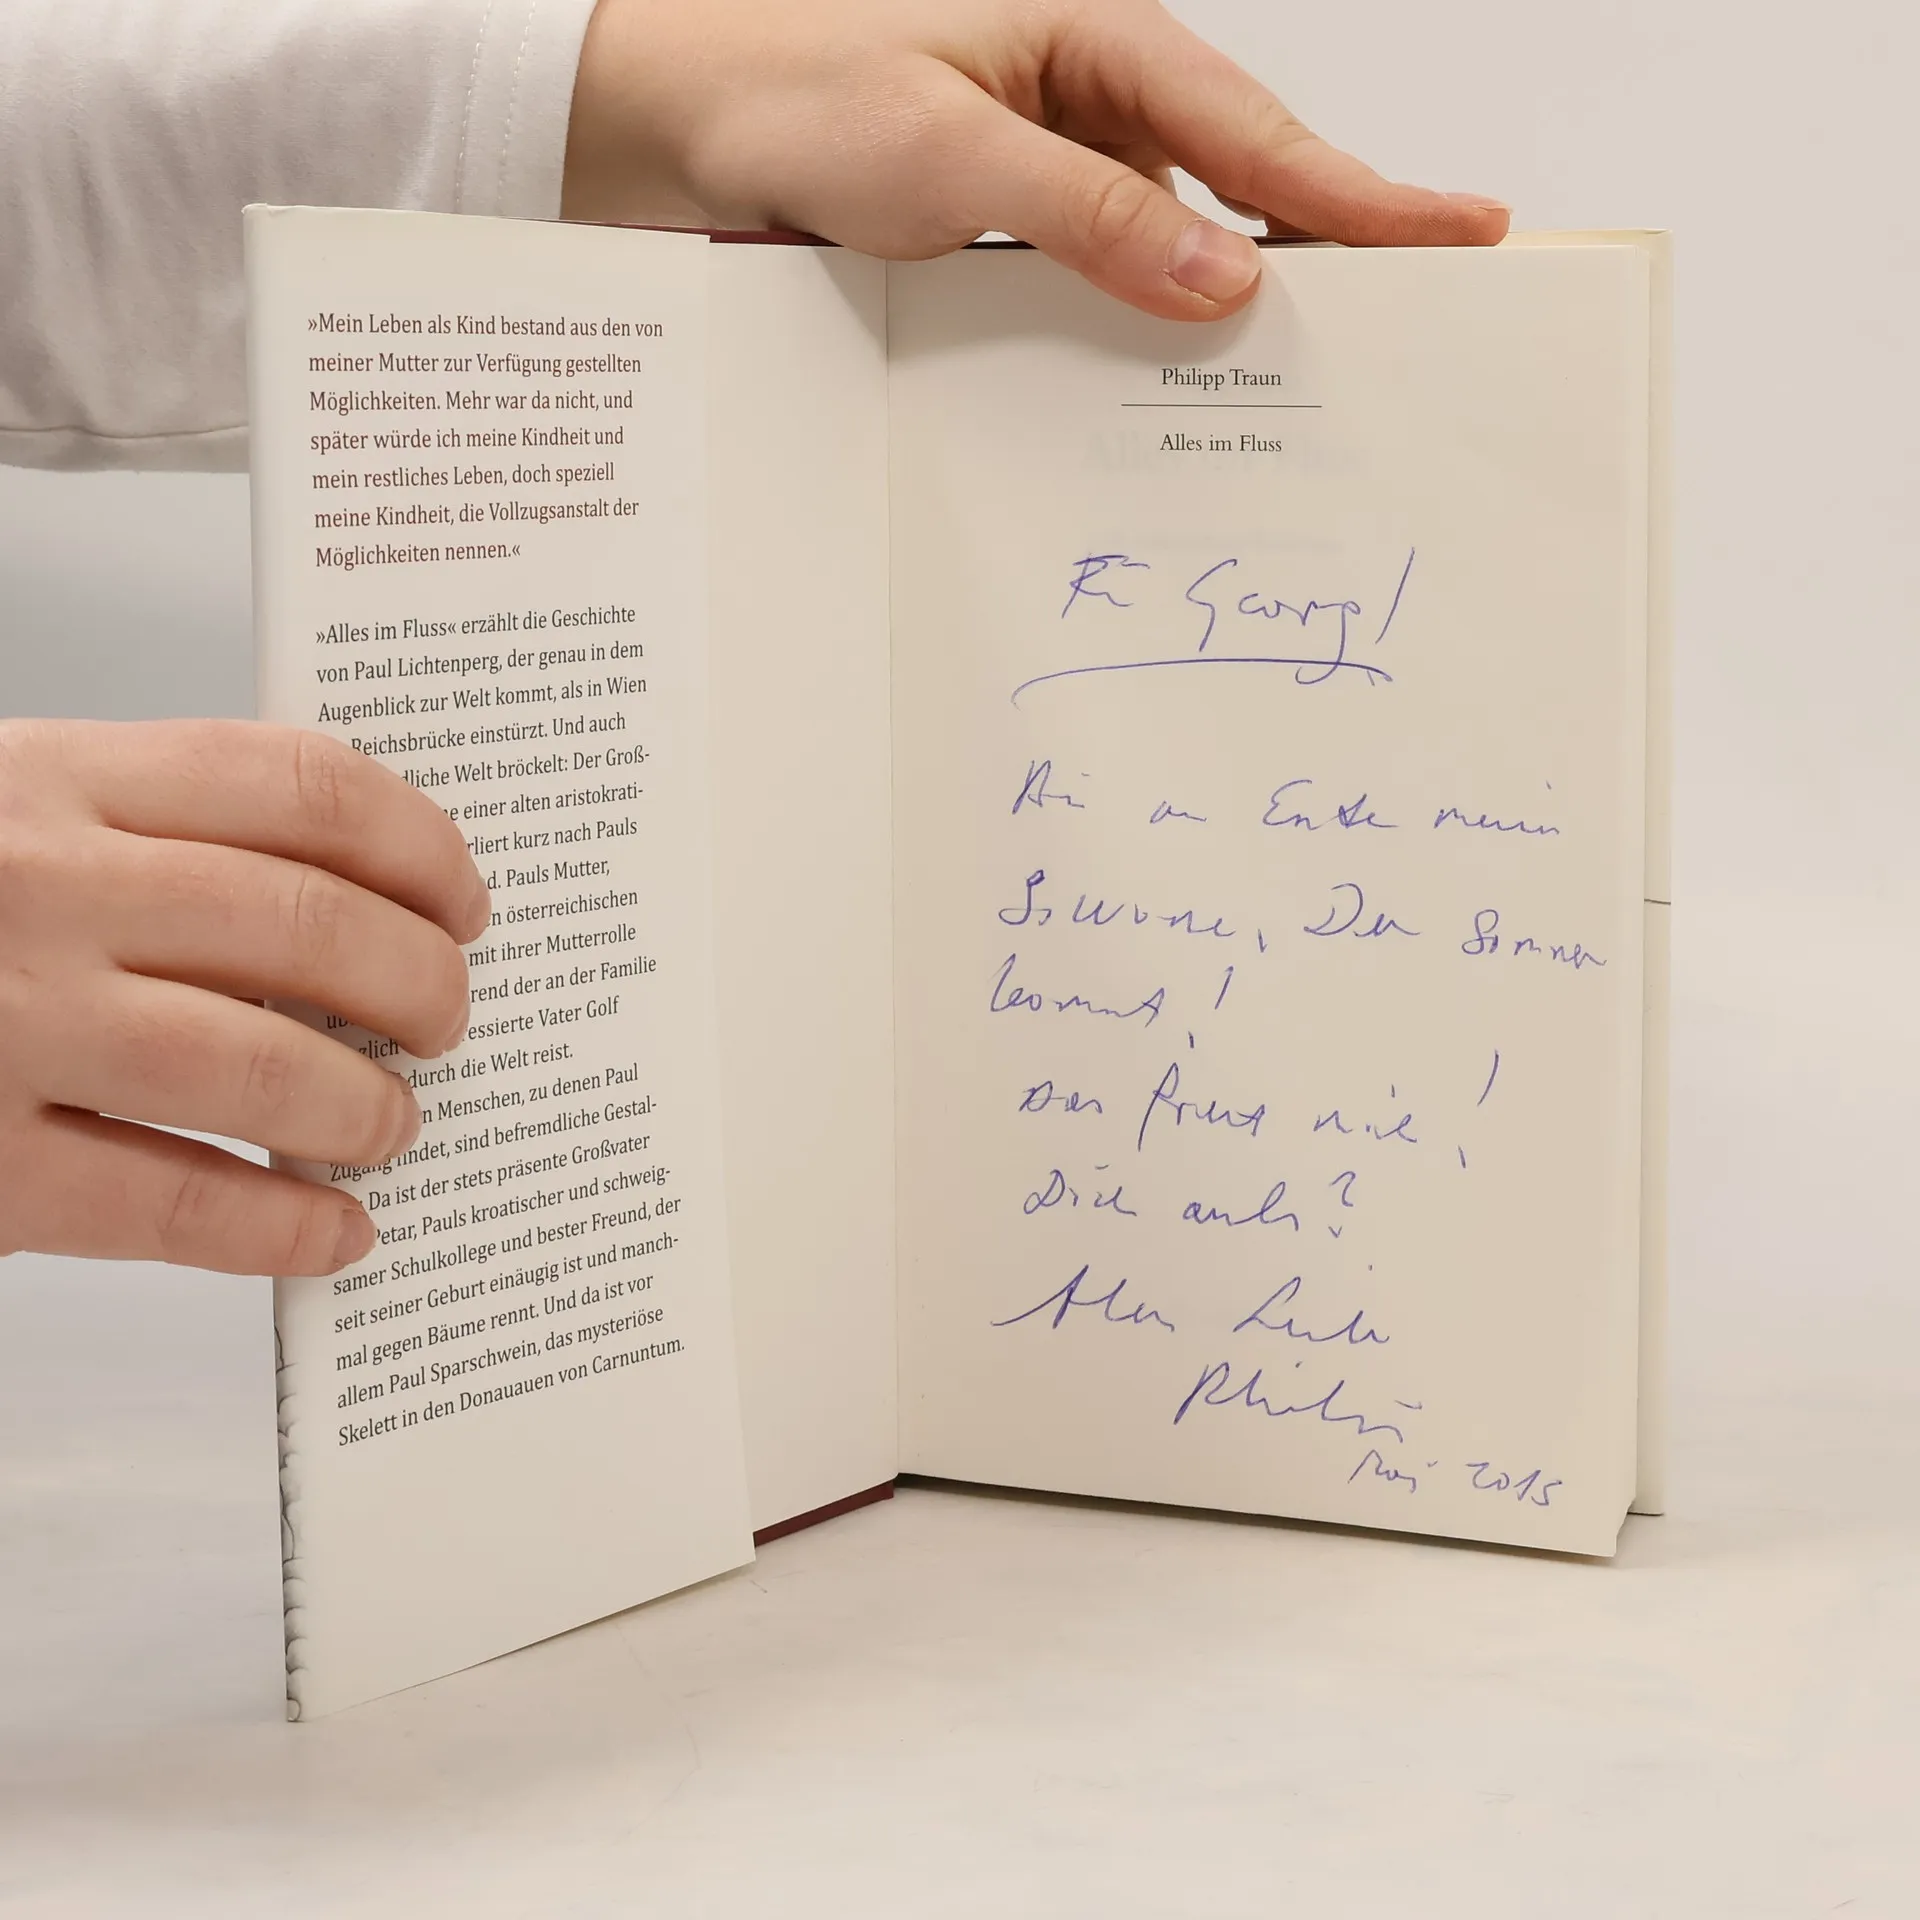 »Mein Leben als Kind bestand aus den von
meiner Mutter zur Verfügung gestellten
Möglichkeiten. Mehr war da nicht, und
später würde ich meine Kindheit und
mein restliches Leben, doch speziell
meine Kindheit, die Vollzugsanstalt der
Möglichkeiten nennen.«
»Alles im Fluss« erzählt die Geschichte
von Paul Lichtenperg, der genau in dem
Augenblick zur Welt kommt, als in Wien
Reichsbrücke einstürzt. Und auch
dliche Welt bröckelt: Der Groß-
e einer alten aristokrati-
rliert kurz nach Pauls
d. Pauls Mutter,
n österreichischen
mit ihrer Mutterrolle
rend der an der Familie
essierte Vater Golf
zlich durch die Welt reist.
n Menschen, zu denen Paul
Zugang findet, sind befremdliche Gestal-
Da ist der stets präsente Großvater
Petar, Pauls kroatischer und schweig-
samer Schulkollege und bester Freund, der
seit seiner Geburt einäugig ist und manch-
mal gegen Bäume rennt. Und da ist vor
allem Paul Sparschwein, das mysteriöse
Skelett in den Donauauen von Carnuntum.
Philipp Traun
Alles im Fluss
Für Georg!
Ente
Der Sommer
kommt!
Das freut mich!
Dich auch?
Alles Liebe
Philipp
Mai 2015